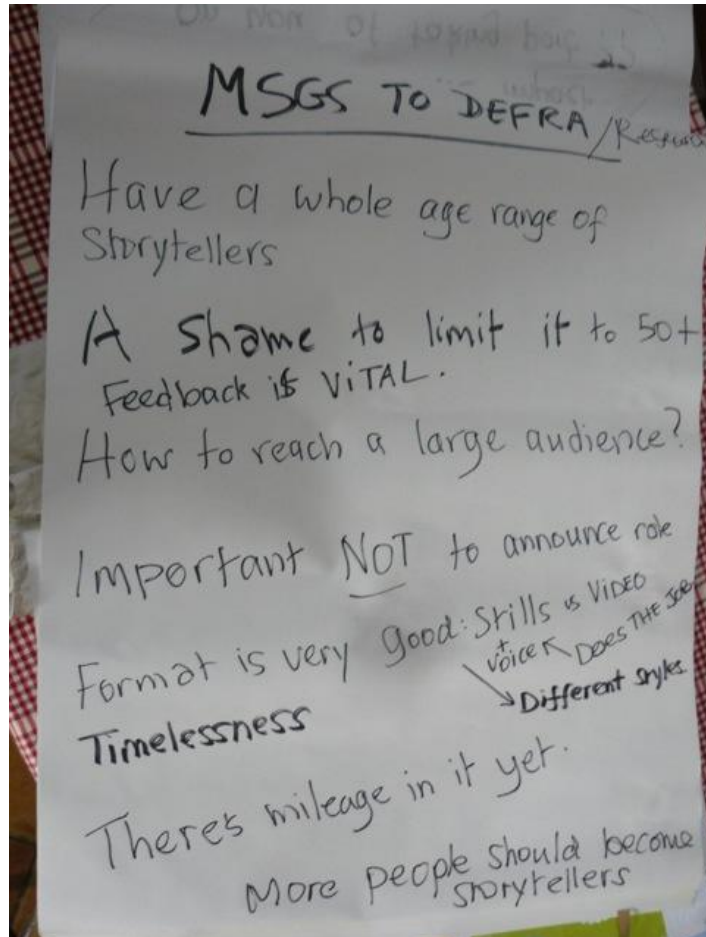 MSGS TO DEFRA/
Have a whole age range of
Storytellers
A shame to limit it to 50+
Feedback is ViTAL.
How to reach a large audience?
Important NOT to announce role
Format is very good: Stills vs ViDEO
+
voice DOES THE JOB
Different styles
Timelessness
There's mileage in it yet.
More people should become
storytellers